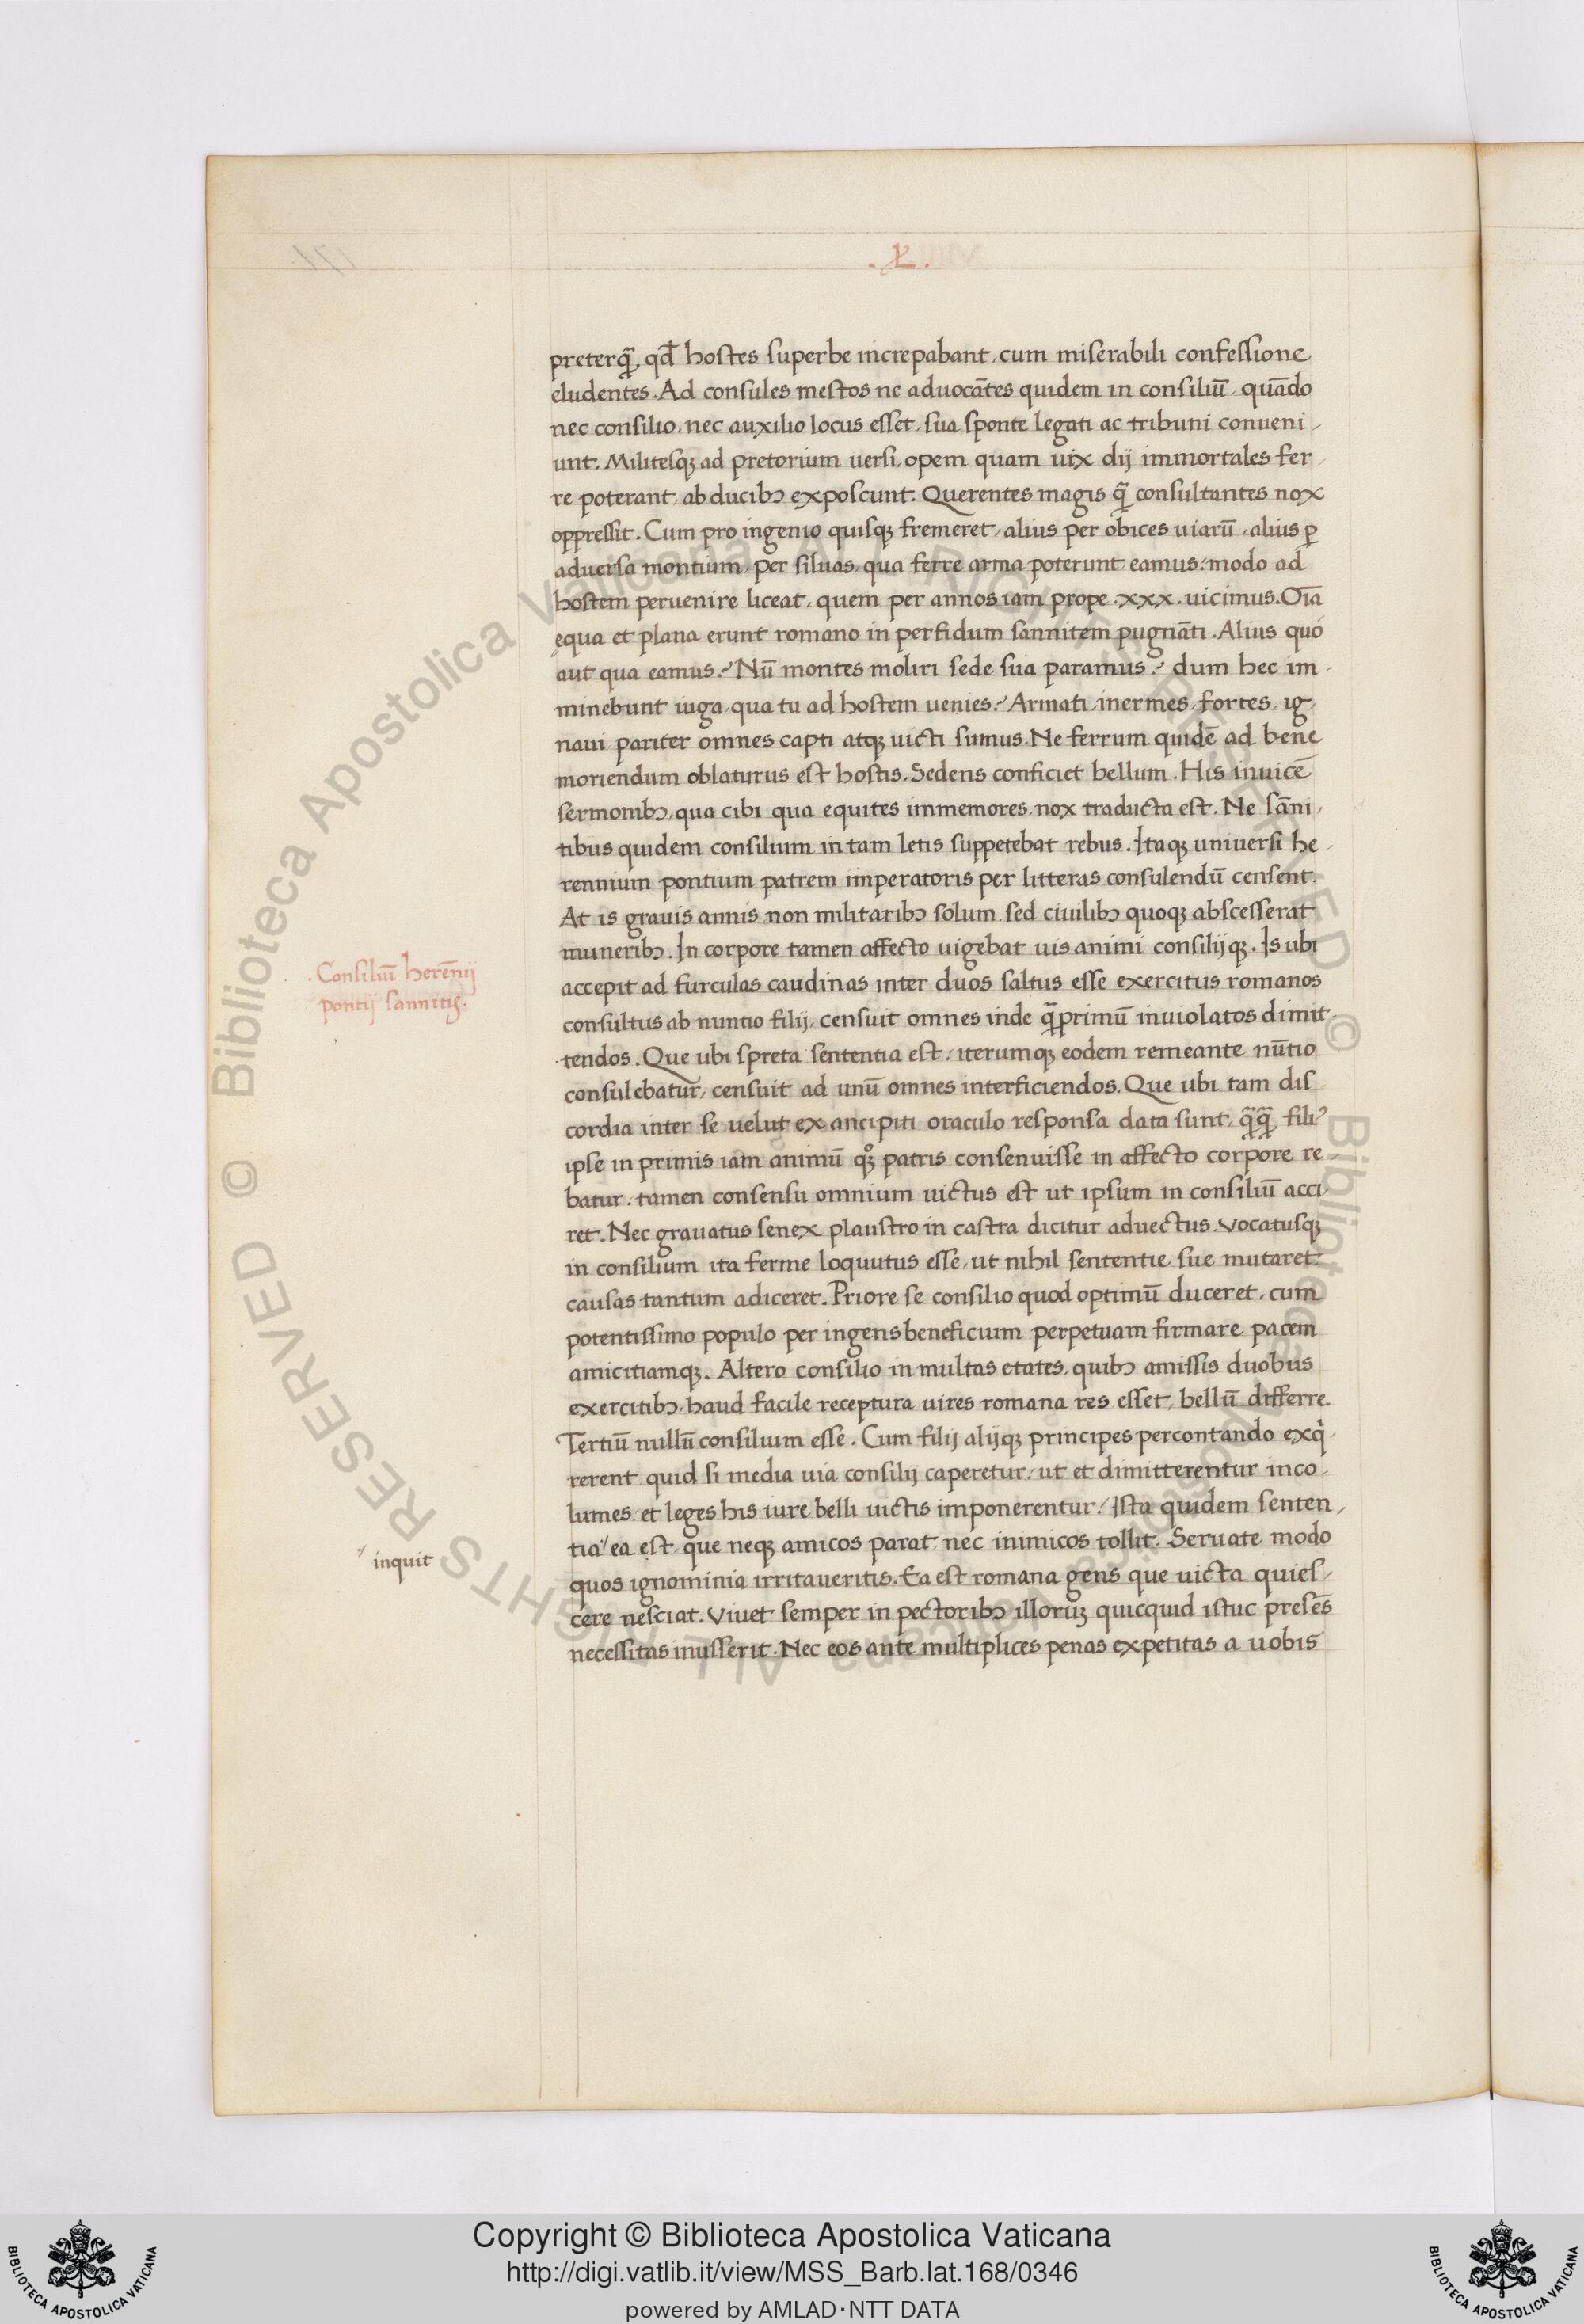 .L.
preterq̄, qd̄ hostes superbe increpabant, cum miserabili confessione
eludentes. Ad consules mestos ne aduocātes quidem in consiliū, quādo
nec consilio, nec auxilio locus esset, sua sponte legati ac tribuni conueni,
unt. Militesqꝫ ad pretorium uersi, opem quam uix dij immortales fer,
re poterant, ab ducibꝰ exposcunt. Querentes magis q̄ consultantes nox
oppressit. Cum pro ingenio quisqꝫ fremeret, alius per obices uiarū, alius ꝑ
aduersa montium, per siluas, qua ferre arma poterunt eamus: modo ad
hostem peruenire liceat, quem per annos iam prope .xxx. uicimus. Oīa
ęqua et plana erunt romano in perfidum sannitem pugnāti. Alius quo
aut qua eamus? Nū montes moliri sede sua paramus? dum hec im,
minebunt iuga, qua tu ad hostem uenies? Armati, inermes, fortes, ig,
naui pariter omnes capti atqꝫ uicti sumus. Ne ferrum quidē ad bene
moriendum oblaturus est hostis. Sedens conficiet bellum. His inuicē
sermonibꝰ, qua cibi qua equites immemores, nox traducta est. Ne sāni,
tibus quidem consilium in tam letis suppetebat rebus. Itaqꝫ uniuersi he,
rennium pontium patrem imperatoris per litteras consulendū censent.
At is grauis annis non militaribꝰ solum, sed ciuilibꝰ quoqꝫ abscesserat
muneribꝰ. In corpore tamen affecto uigebat uis animi consilijqꝫ. Is ubi
. Consiliū herēnij
pontij sannitis.
accepit ad furculas caudinas inter duos saltus esse exercitus romanos
consultus ab nuntio filij, censuit omnes inde q̄primū inuiolatos dimit,
tendos. Que ubi spreta sententia est, iterumqꝫ eodem remeante nūtio
consulebatur, censuit ad unū omnes interficiendos. Que ubi tam dis
cordia inter se uelut ex ancipiti oraculo responsa data sunt, q̄q̄ filiꝰ
ipse in primis iam animū qꝫ patris consenuisse in affecto corpore re
batur, tamen consensu omnium uictus est ut ipsum in consiliū acci,
ret. Nec grauatus senex plaustro in castra dicitur aduectus. Vocatusqꝫ
in consilium ita ferme loquutus esse, ut nihil sententie sue mutaret:
causas tantum adiceret. Priore se consilio quod optimū duceret, cum
potentissimo populo per ingens beneficium perpetuam firmare pacem
amicitiamqꝫ. Altero consilio in multas etates, quibꝰ amissis duobus
exercitibꝰ, haud facile receptura uires romana res esset, bellū differre.
Tertiū nullū consilium esse. Cum filij alijqꝫ principes percontando exq̇,
rerent quid si media uia consilij caperetur, ut et dimitterentur inco,
lumes, et leges his iure belli uictis imponerentur? Ista quidem senten,
tia// ea est, que neqꝫ amicos parat nec inimicos tollit. Seruate modo
// inquit
quos ignominia irritaueritis. Ea est romana gens que uicta quies,
cere nesciat. Viuet semper in pectoribꝰ illorūꝫ quicquid istuc presēs
necessitas inusserit. Nec eos ante multiplices penas expetitas a uobis
© Biblioteca Apostolica Vaticana ALL RIGHTS RESERVED
© Biblioteca Apostolica Vaticana ALL RIGHTS RESERVED
Copyright © Biblioteca Apostolica Vaticana
http://digi.vatlib.it/view/MSS_Barb.lat.168/0346
powered by AMLAD·NTT DATA
BIBLIOTECA APOSTOLICA VATICANA
BIBLIOTECA APOSTOLICA VATICANA